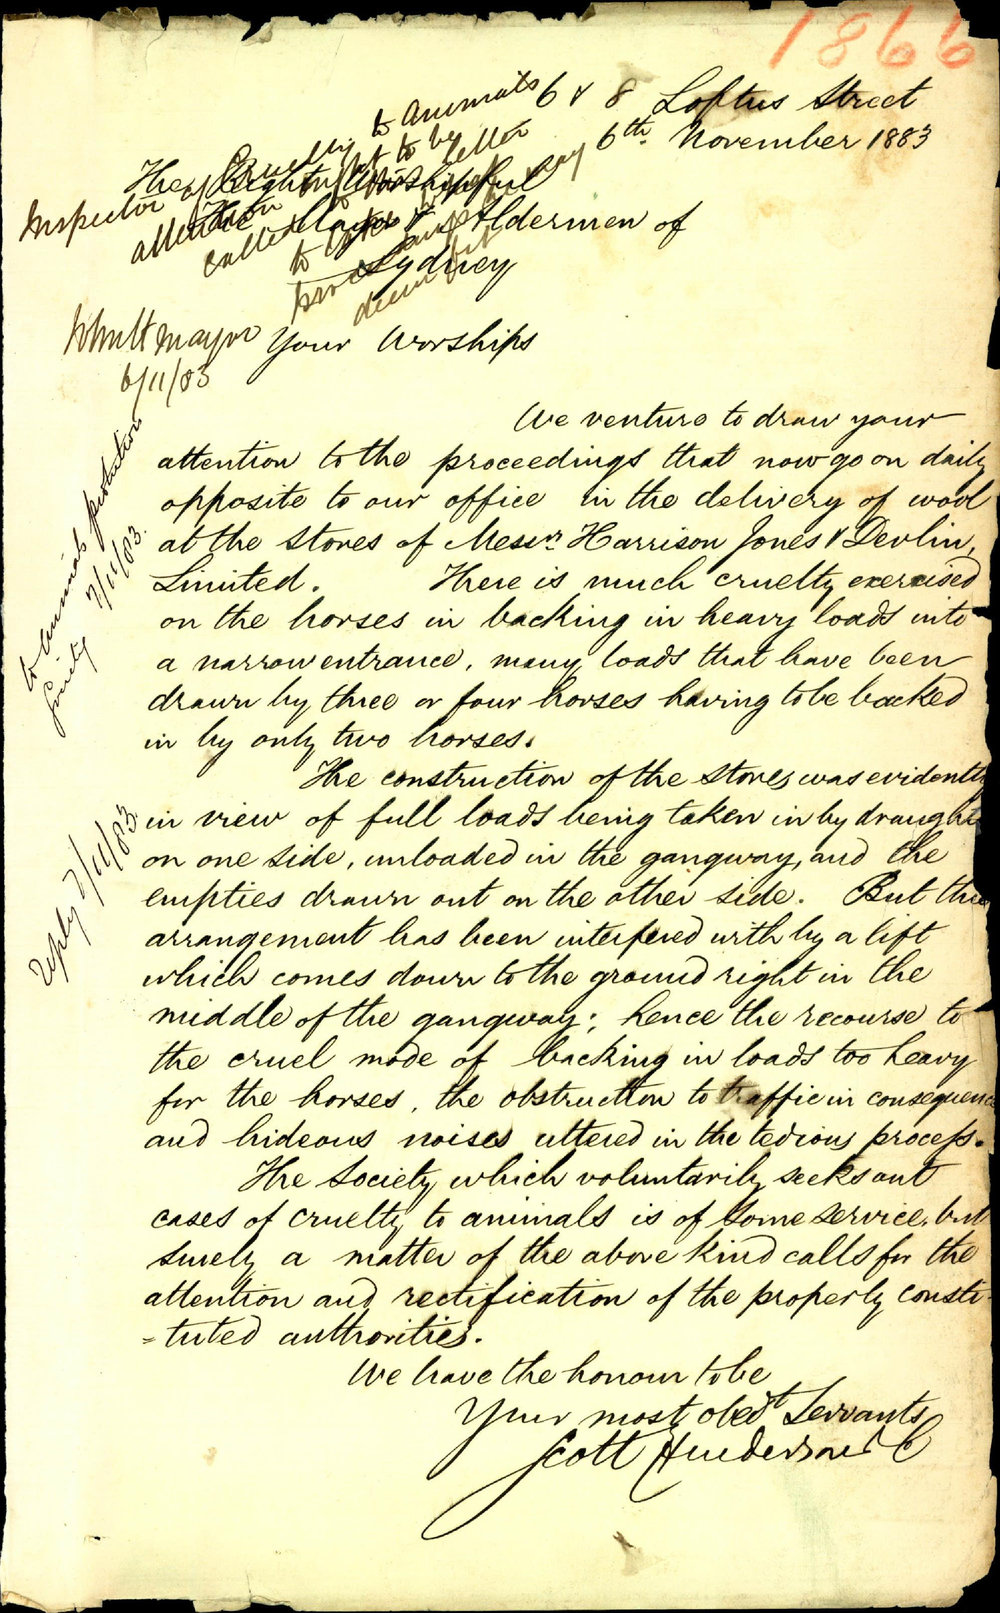 1866
6 & 8 Loftus Street
6th November 1883
The Right Worshipful
The Mayor & Aldermen of
Sydney
Inspector of Cruelty to Animals
attention to be
called to letter
to
John Hy Mayor
6/11/83
Your Worships
We venture to draw your
attention to the proceedings that now go on daily
opposite to our office in the delivery of wool
at the stores of Messrs Harrison Jones & Devlin,
Limited. There is much cruelty exercised
on the horses in backing in heavy loads into
a narrow entrance, many loads that have been
drawn by three or four horses having to be backed
in by only two horses.
The construction of the stores was evidently
in view of full loads being taken in by draught
on one side, unloaded in the gangway, and the
empties drawn out on the other side. But this
arrangement has been interfered with by a lift
which comes down to the ground right in the
middle of the gangway; hence the recourse to
the cruel mode of backing in loads too heavy
for the horses, the obstruction to traffic in consequence
and hideous noises uttered in the tedious process.
The Society which voluntarily seeks out
cases of cruelty to animals is of some service, but
surely a matter of the above kind calls for the
attention and rectification of the properly consti-
=tuted authorities.
We have the honour to be
Your most obedt Servants
Scott Henderson & Co
to animals protection
Society 7/11/83.
reply 7/11/83.